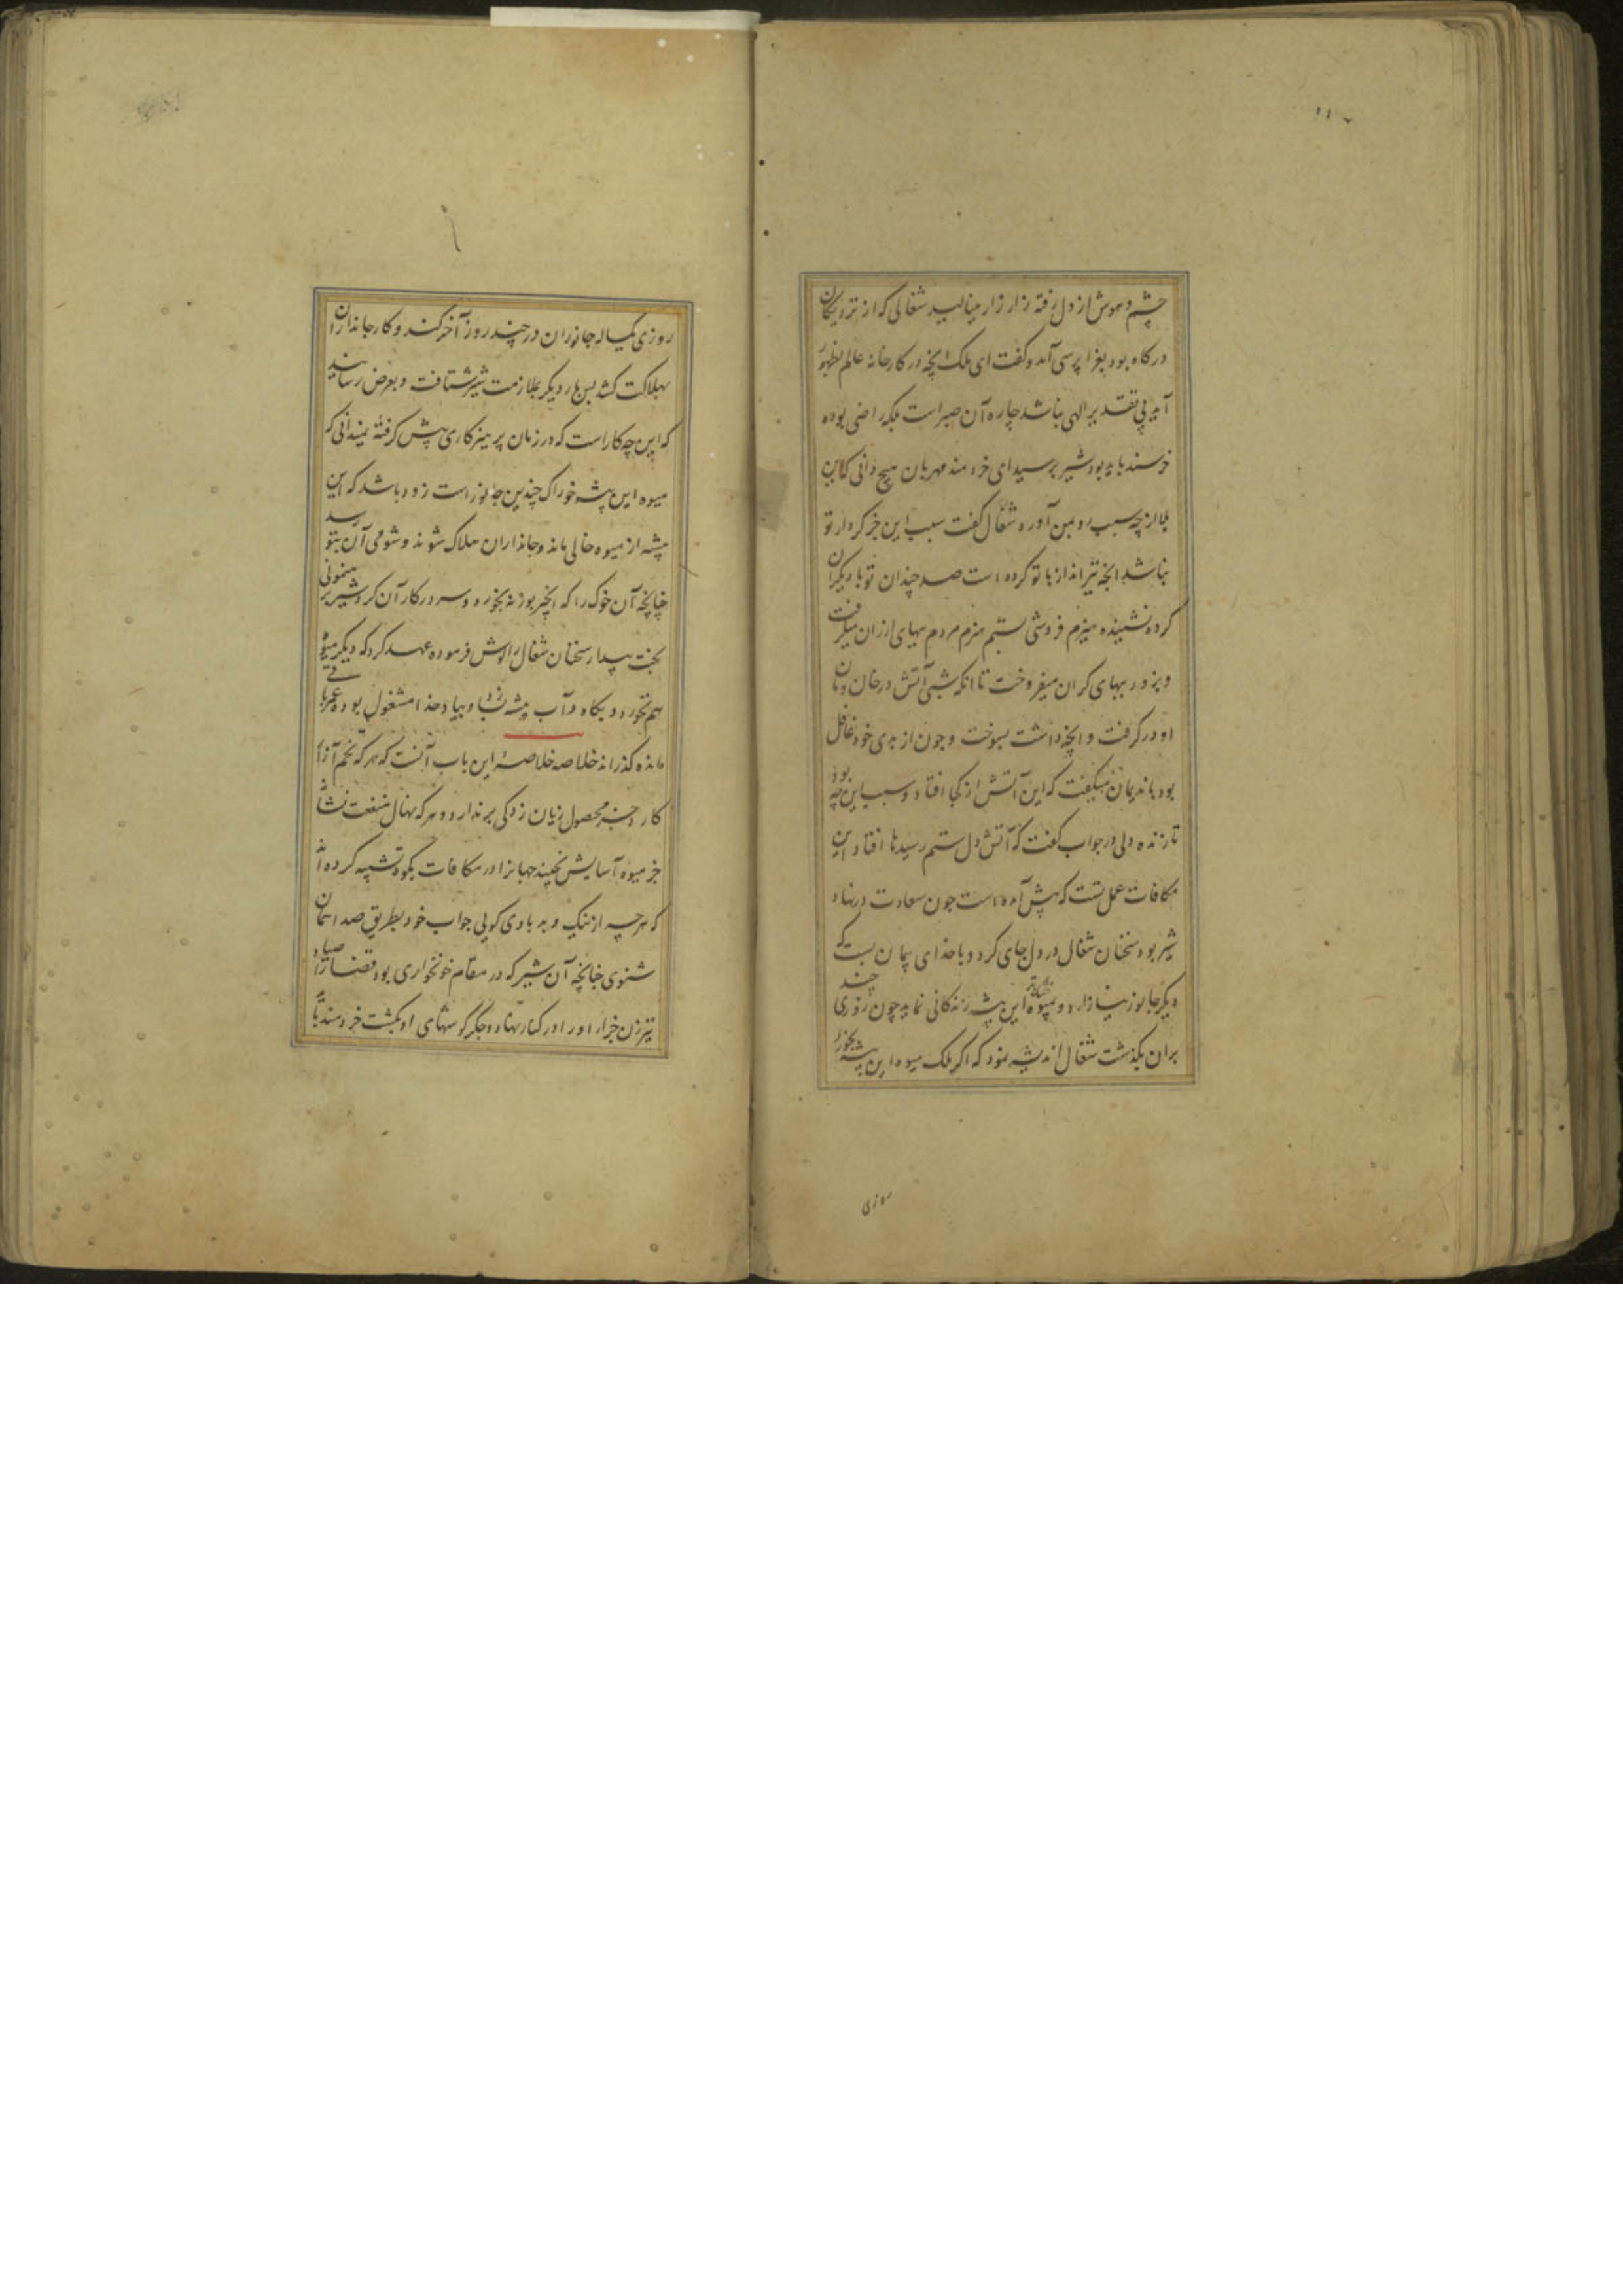 چشم و هوش از دل رفته زار زار مینالید شغالی که از نزدیکان
درگاه بود بعزا پرسی آمد و گفت ای ملک انچه در کارخانه عالم بظهور
آید بی تقدیر الهی نباشد چاره آن صبر است بلکه راضی بوده
خرسند باید بود شیر پرسید ای خردمند مهربان هیچ دانی که این
بلا از چه سبب رو بمن آورد شغال گفت سبب این جز کردار تو
نباشد انچه تیرانداز با تو کرده است صد چندان تو با دیگران
کرده نشنیده هیزم فروشی بستم هیزم مردم ببهای ارزان میگرفت
و بزور ببهای گران میفروخت تا آنکه شبی آتش در خان و مان
او در گرفت و انچه داشت بسوخت و چون از بدی خود غافل
بود با ندیمان میگفت که این آتش از کجا افتاد و سبب این چه بود
تا زنده دلی در جواب گفت که آتش دل ستم رسیدها افتاد این
مکافات عمل تست که پیش آمده است چون سعادت در نهاد
شیر بود سخنان شغال در دل جای کرد و با خدای پیمان بست که
دیگر جانور نیازارد و بمیوه این بیشه زندگانی نماید چون روزی چند
بران بگذشت شغال اندیشه نمود که اگر ملک میوه این بیشه بخورد
روزی
روزی یکساله جانوران در چند روز آخر کند و کار جانداران
بهلاکت کشد پس بار دیگر بملازمت شیر شتافت و بعرض رسانید
که این چه کار است که در زمان پرهیزکاری پیش گرفته نمیدانی که
میوه این بیشه خوراک چندین جانور است زود باشد که این
بیشه از میوه خالی ماند و جانداران هلاک شوند و شومی آن بتو رسد
چنانچه آن خوک را که انجیر بوزنه بخورد و سر در کار آن کرد شیر برهنمونی
بخت بیدار سخنان شغال را گوش فرموده عهد کرد که دیگر میوه
هم نخورد و بگاه و آب بیشه و بیاد خدا مشغول بوده عمر باقی
مانده گذراند خلاصه خلاصهٔ این باب آنست که هر که تخم آزار
کارد جز محصول زیان زدگی بر ندارد و هر که نهال منفعت نشاند
جز میوه آسایش نچیند جهانرا در مکافات بکوه تشبیه کرده اند
که هر چه از نیک و بد باوی گویی جواب خود بطریق صدا همان
شنوی چنانچه آن شیر که در مقام خونخواری بود قضا را صیاد
تیرزن جزا او را در کنار نهاد و جگر گوشهای او بکشت خردمند باید